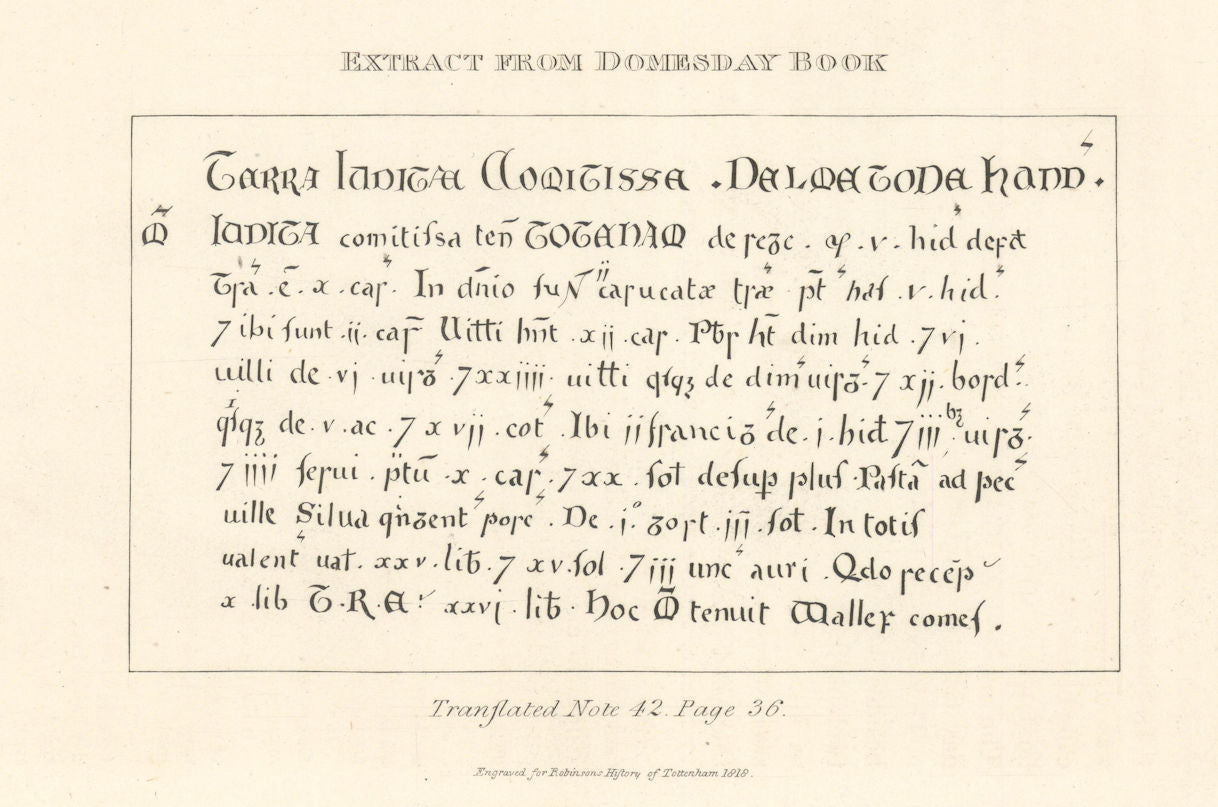 EXTRACT FROM DOMESDAY BOOK
TERRA IUDITÆ COMITISSE . DELMETONE HAND' .
M̃ IUDITA comitiſsa teñ TOTEHAM de rege . p . v . hid' defđ
Tra' . ē . x . car' . In dñio ſuN̄ ii carucatæ træ' p̄t' haſ . v . hid' .
⁊ ibi ſunt . ij . car̄ Uitti hñt . xij . car . Pƀr ħt dim hid . ⁊ vj .
uilli de . vj . uirg' . ⁊ xxiiij . uitti qſqꝫ de dim' uirg' . ⁊ xij . bord' .
qſqꝫ de . v . ac . ⁊ xvij . cot' . Ibi ij francig' de . j . hiđ ⁊ iij bꝫ uirg' .
⁊ iiij ſerui . p̃tū . x . car' . ⁊ xx . ſot deſuꝑ pluſ . Paſtā ad pec'
uille Silua qingent' porc' . De . j° . gort . iij . ſot . In totiſ
ualent' uat . xxv . liƀ . ⁊ xv . ſol . ⁊ iij unc' auri . Qdo recep̄
x . lib T . R . E . xxvj . liƀ . Hoc M̃ tenuit Wallef comeſ .
Tranſlated Note 42. Page 36.
Engraved for Robinsons Hiſtory of Tottenham 1818.